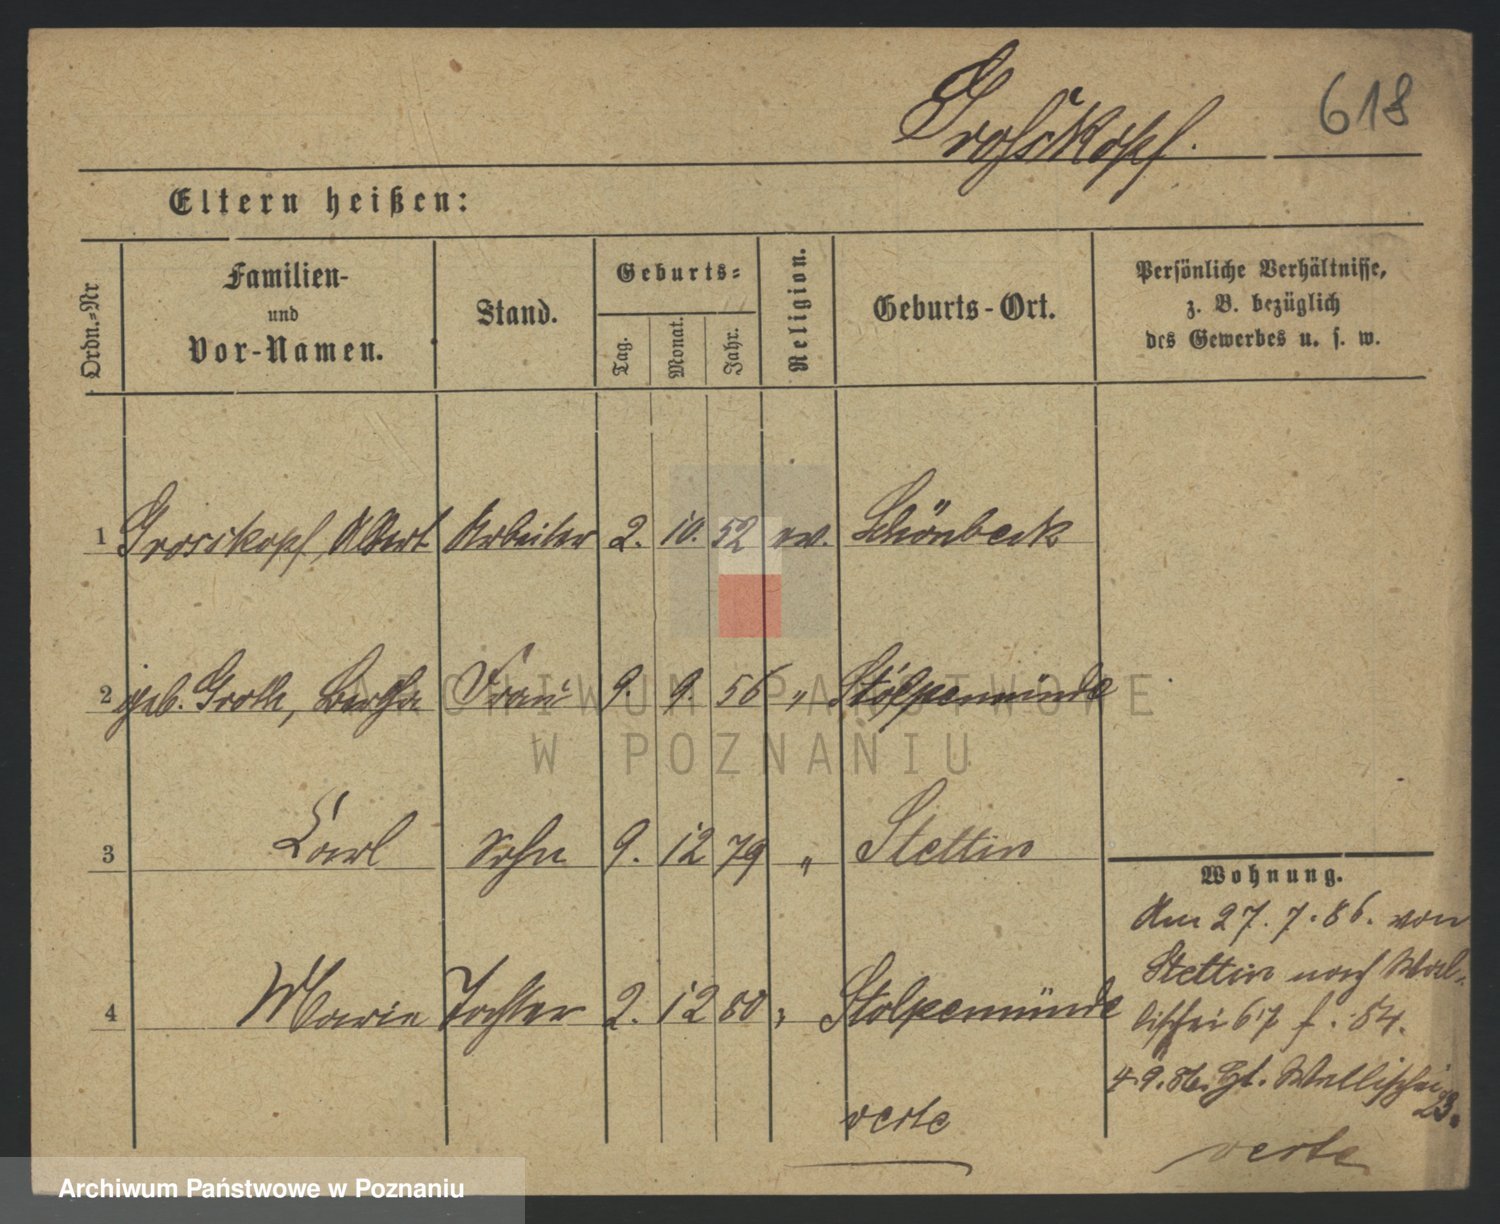 618
Grosskopf.
Eltern heißen:
Ordn.=Nr
Familien-
und
Vor-Namen.
Stand.
Geburts=
Tag.
Monat.
Jahr.
Religion.
Geburts-Ort.
Persönliche Verhältnisse,
z. B. bezüglich
des Gewerbes u. s. w.
1 Grosskopf, Albert Arbeiter 2. 10. 52 ev. Schönbeck
2 geb. Groth, Bertha Frau 9. 9. 56 " Stolpemünde
3 Carl Sohn 9. 12 79 " Stettin
4 Marie Tochter 2. 12 80 " Stolpemünde
verte
Wohnung.
Am 27. 7. 86. von
Stettin nach Wal-
lischei 67 f. 84.
4.9.86. Gt. Wallischei
23.
verte
ARCHIWUM PAŃSTWOWE
W POZNANIU
Archiwum Państwowe w Poznaniu